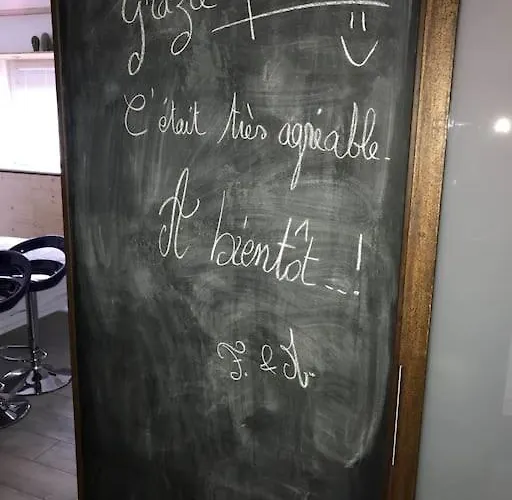 Grazie
C'était très agréable.
À bientôt...!
F. & A.